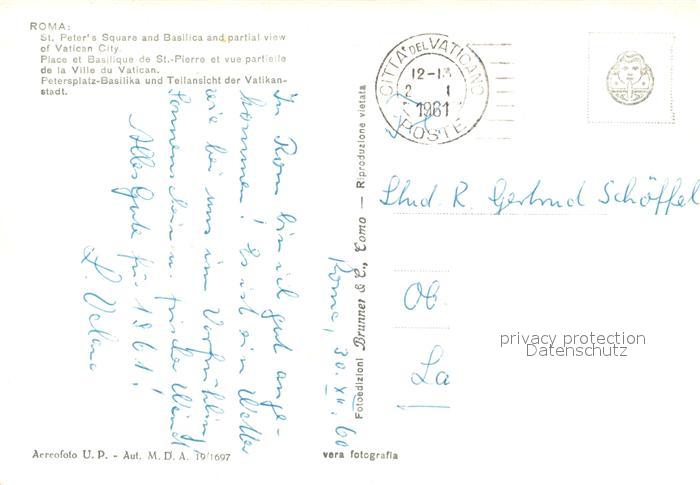 ROMA:
St. Peter's Square and Basilica and partial view
of Vatican City.
Place et Basilique de St.-Pierre et vue partielle
de la Ville du Vatican.
Petersplatz-Basilika und Teilansicht der Vatikan-
stadt.
Roma, 30. XII. 60
In Rom bin ich gut ange-
kommen! Es ist ein Wetter
wie bei uns im Vorfrühling
Sonnenschein m. frischem Wind
Alles Gute für 1961!
CITTA' DEL VATICANO
12-13
2 1
1961
POSTE
Fotoedizioni Brunner & C., Como — Riproduzione vietata
Stud. R. Gertrud Schöffel
Ob
La
privacy protection
Datenschutz
Aereofoto U. P. - Aut. M. D. A. 19/1697
vera fotografia